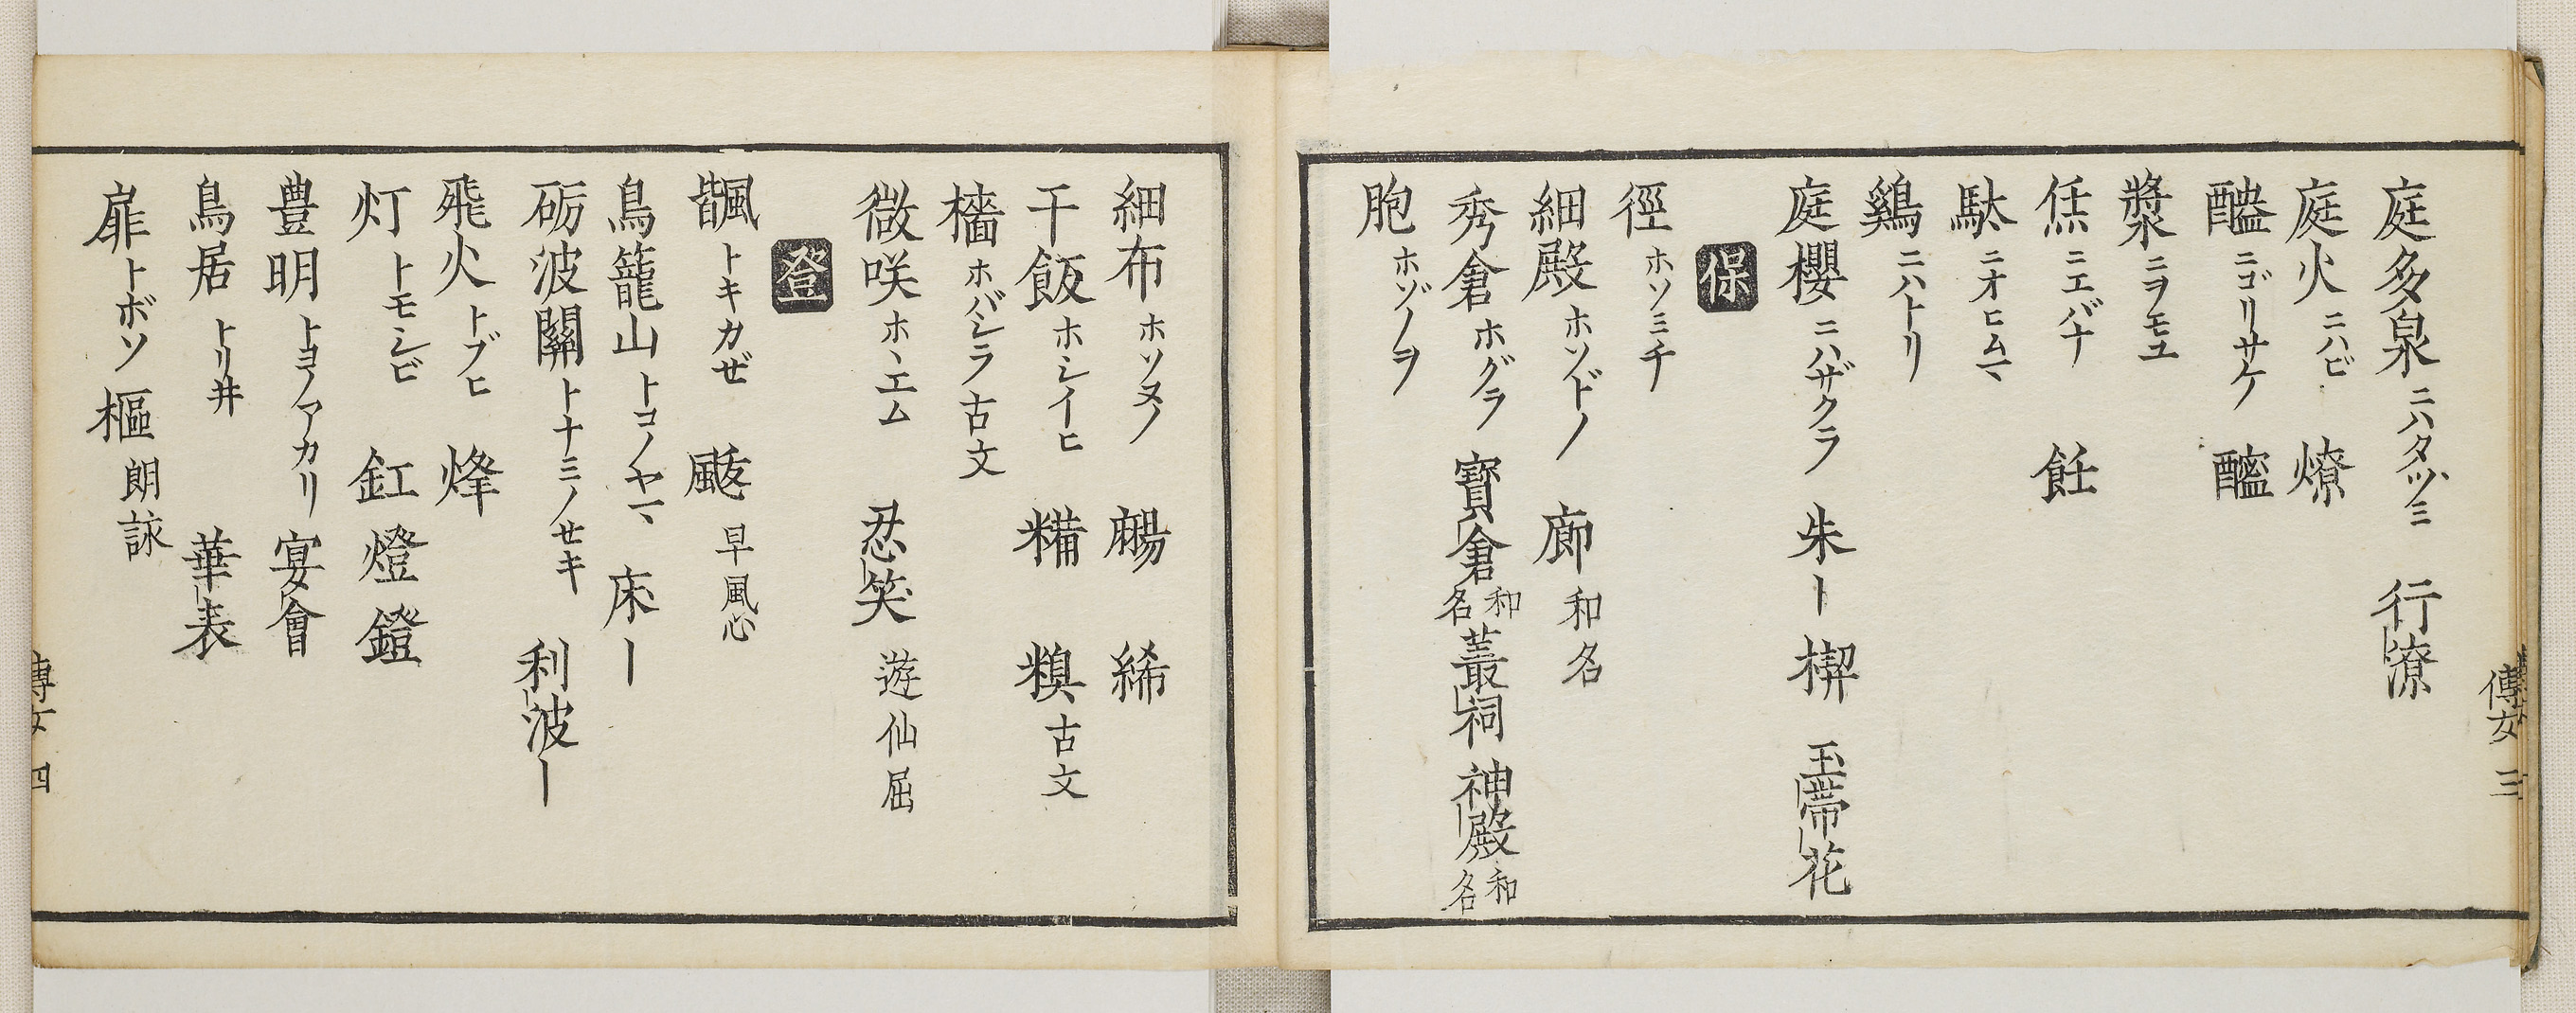 庭多泉ニハタヅミ 行潦
庭火ニハビ 燎
醠ニゴリサケ 醯
漿ニヲモユ
恁ニエバナ 飪
駄ニオヒムマ
鷄ニハトリ
庭櫻ニハザクラ 朱ー 楔 玉蔕花
保
徑ホソミチ
細殿ホソドノ 廊和名
秀倉ホグラ 寶倉和名 叢祠 神殿和名
胞ホゾノヲ
傳女 三
細布ホソヌノ 緆 絺
干飯ホシイヒ 糒 糗古文
檣ホバシラ古文
微咲ホヽエム 忍笑 遊仙屈
登
飄トキカぜ 颰 早風心
鳥籠山トコノヤマ 床ー
砺波關トナミノセキ 利波ー
飛火トブヒ 烽
灯トモシビ 釭 燈 鐙
豊明トヨノアカリ 宴會
鳥居トリ井 華表
扉トボソ 樞 朗詠
傳女 四